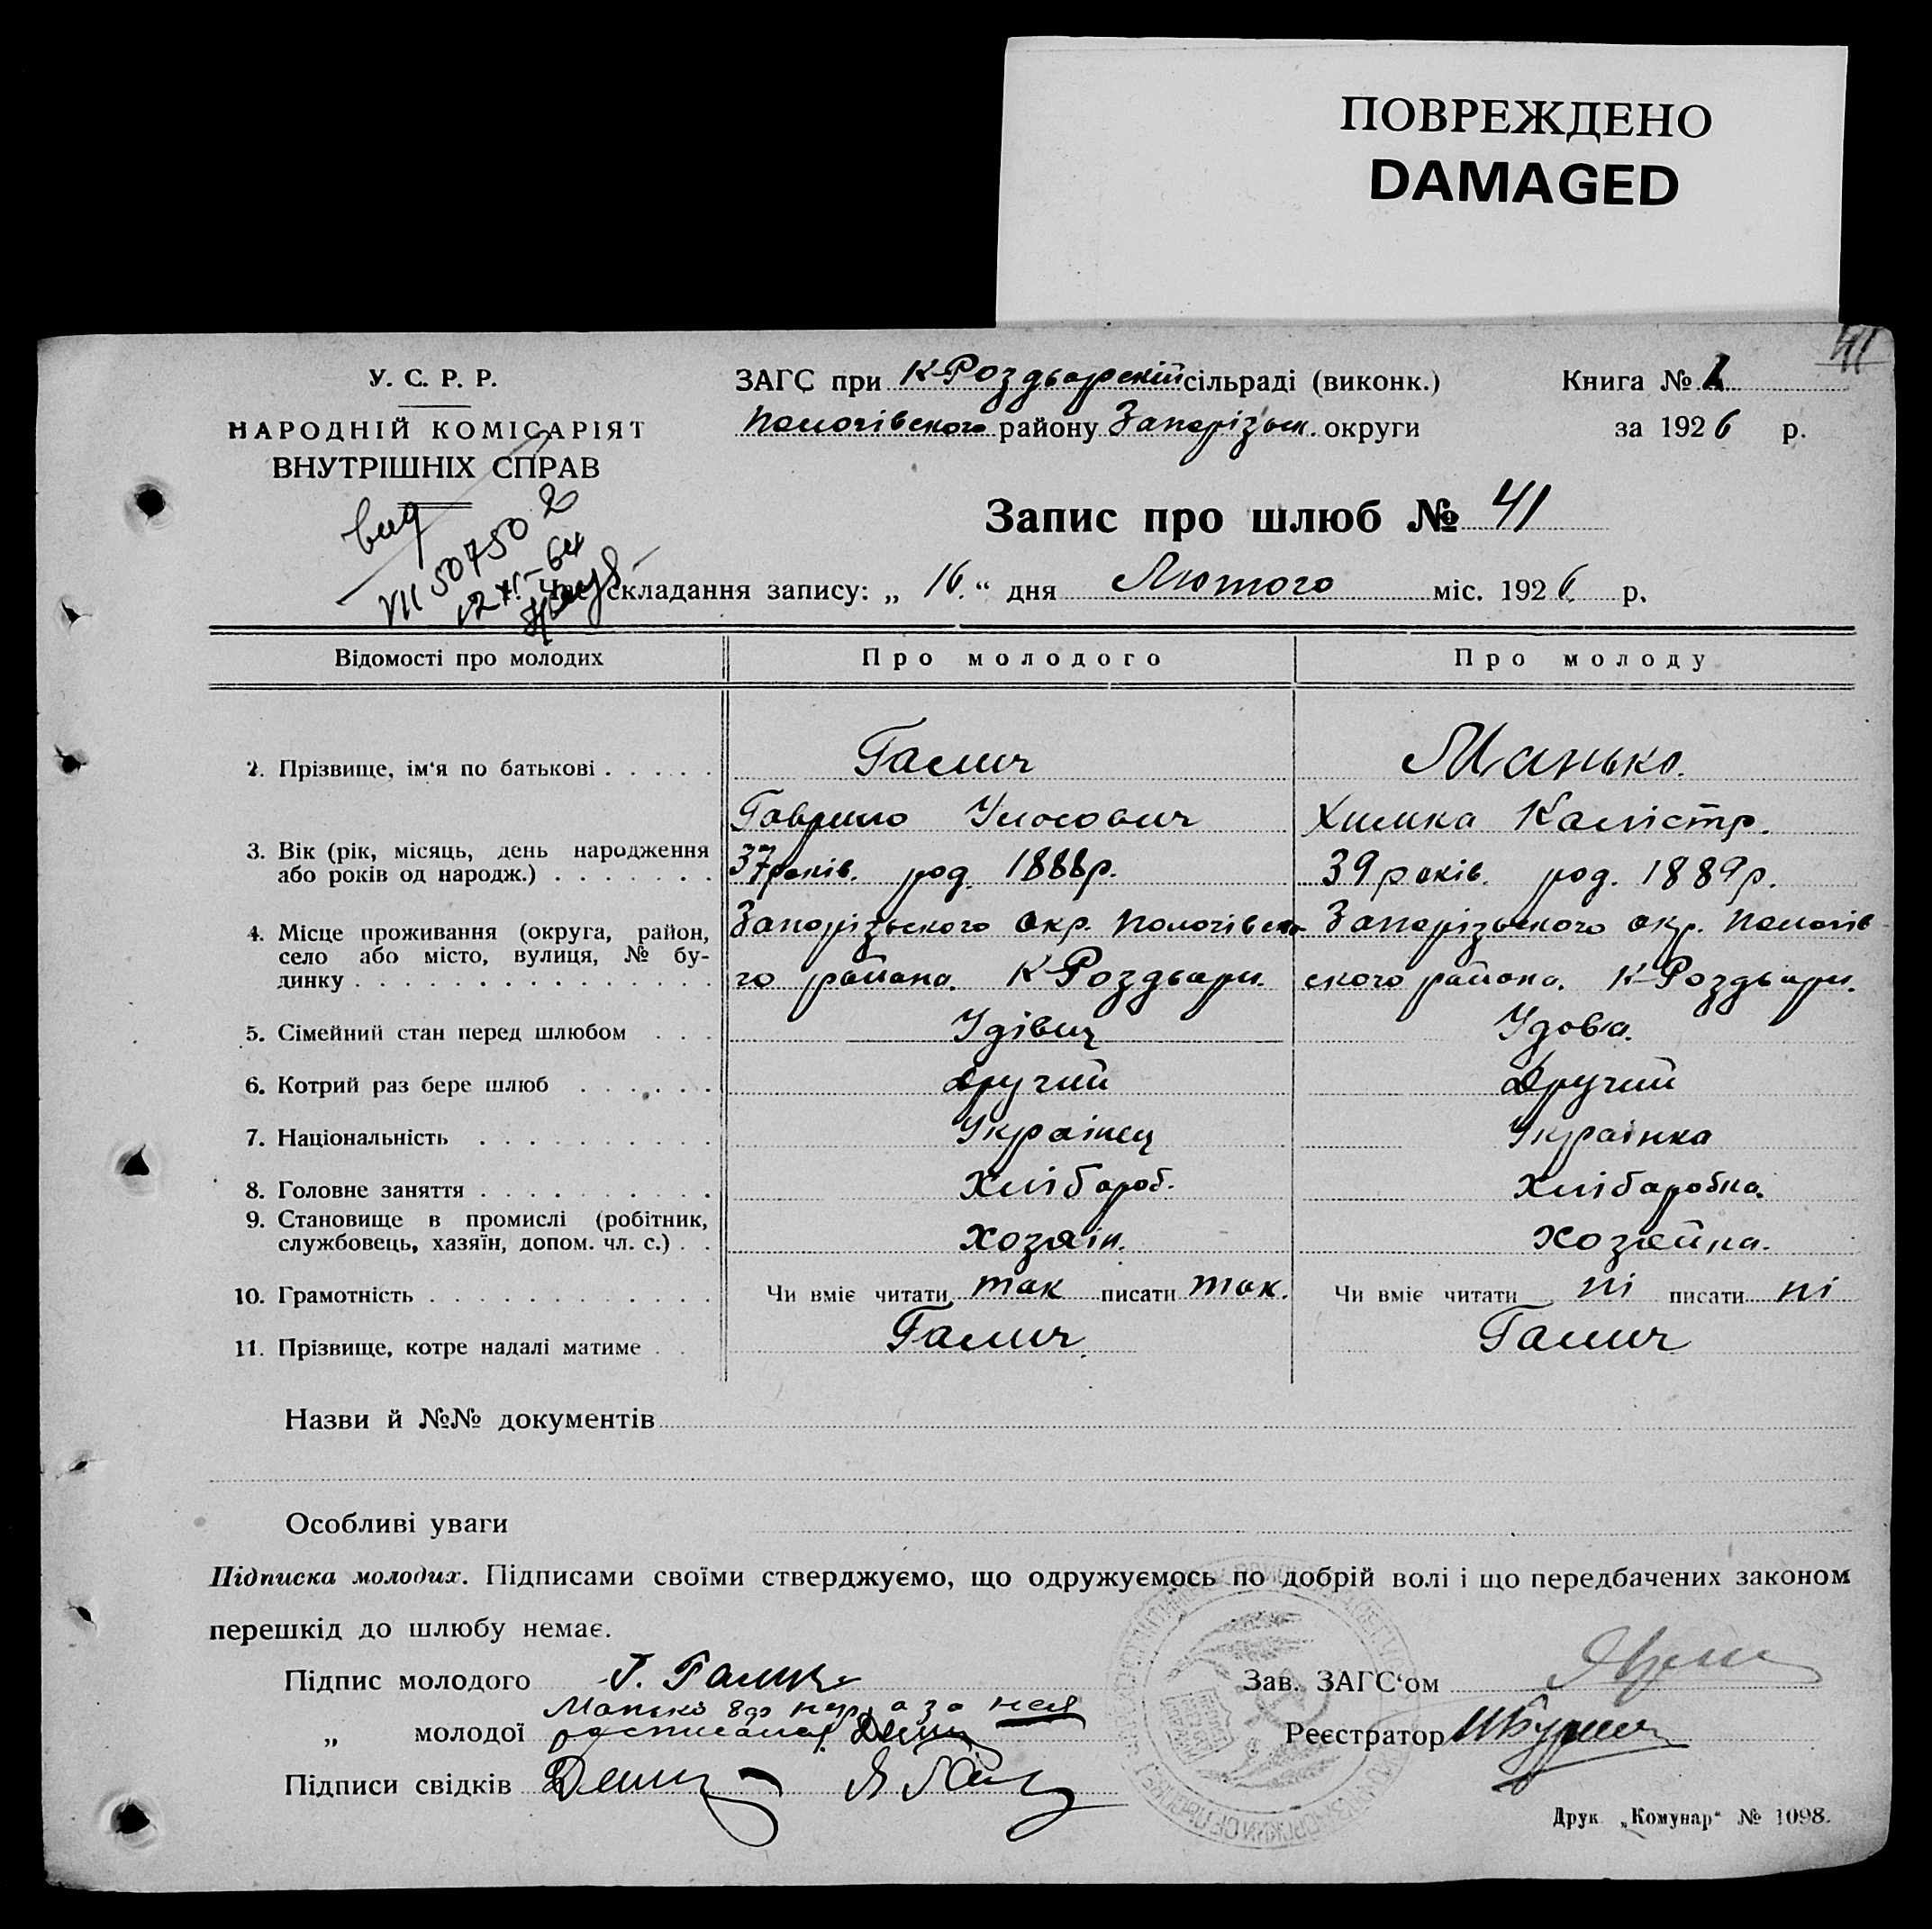 ПОВРЕЖДЕНО
DAMAGED
41
У. С. Р. Р.
НАРОДНІЙ КОМІСАРІЯТ
ВНУТРІШНІХ СПРАВ
ЗАГС при К-Роздьорскій сільраді (виконк.)
Пологівского району Запорізьк. округи
Книга № 1
за 1926 р.
вид
VII 507502
Запис про шлюб № 41
1. Час складання запису: „ 16. “ дня Лютого міс. 1926. р.
Відомості про молодих Про молодого Про молоду
2. Прізвище, ім'я по батькові Галич Манько.
Гаврило Уласович Химка Калістр.
3. Вік (рік, місяць, день народження
або років од народж.) 37 років. род. 1888р. 39 років. род. 1889р.
4. Місце проживання (округа, район,
село або місто, вулиця, № бу-
динку
Запорізького окр. Пологівско- Запорізького окр. Пологів-
го района. К-Роздьори. ского района. К-Роздьори.
5. Сімейний стан перед шлюбом Удівец Удова.
6. Котрий раз бере шлюб Другий Другий
7. Національність Українец Українка
8. Головне заняття Хлібороб. Хліборобка.
9. Становище в промислі (робітник,
службовець, хазяїн, допом. чл. с.) Хозяін. Хозяйка.
10. Грамотність Чи вміє читати так писати так. Чи вміє читати ні писати ні
11. Прізвище, котре надалі матиме Галич. Галич
Назви й №№ документів
Особливі уваги
Підписка молодих. Підписами своїми стверджуємо, що одружуємось по добрій волі і що передбачених законом
перешкід до шлюбу немає.
Підпис молодого Г. Галич
Манько а за нея
„ молодої
Підписи свідків
Зав. ЗАГС'ом
Реєстратор
Друк „Комунар“ № 1098.